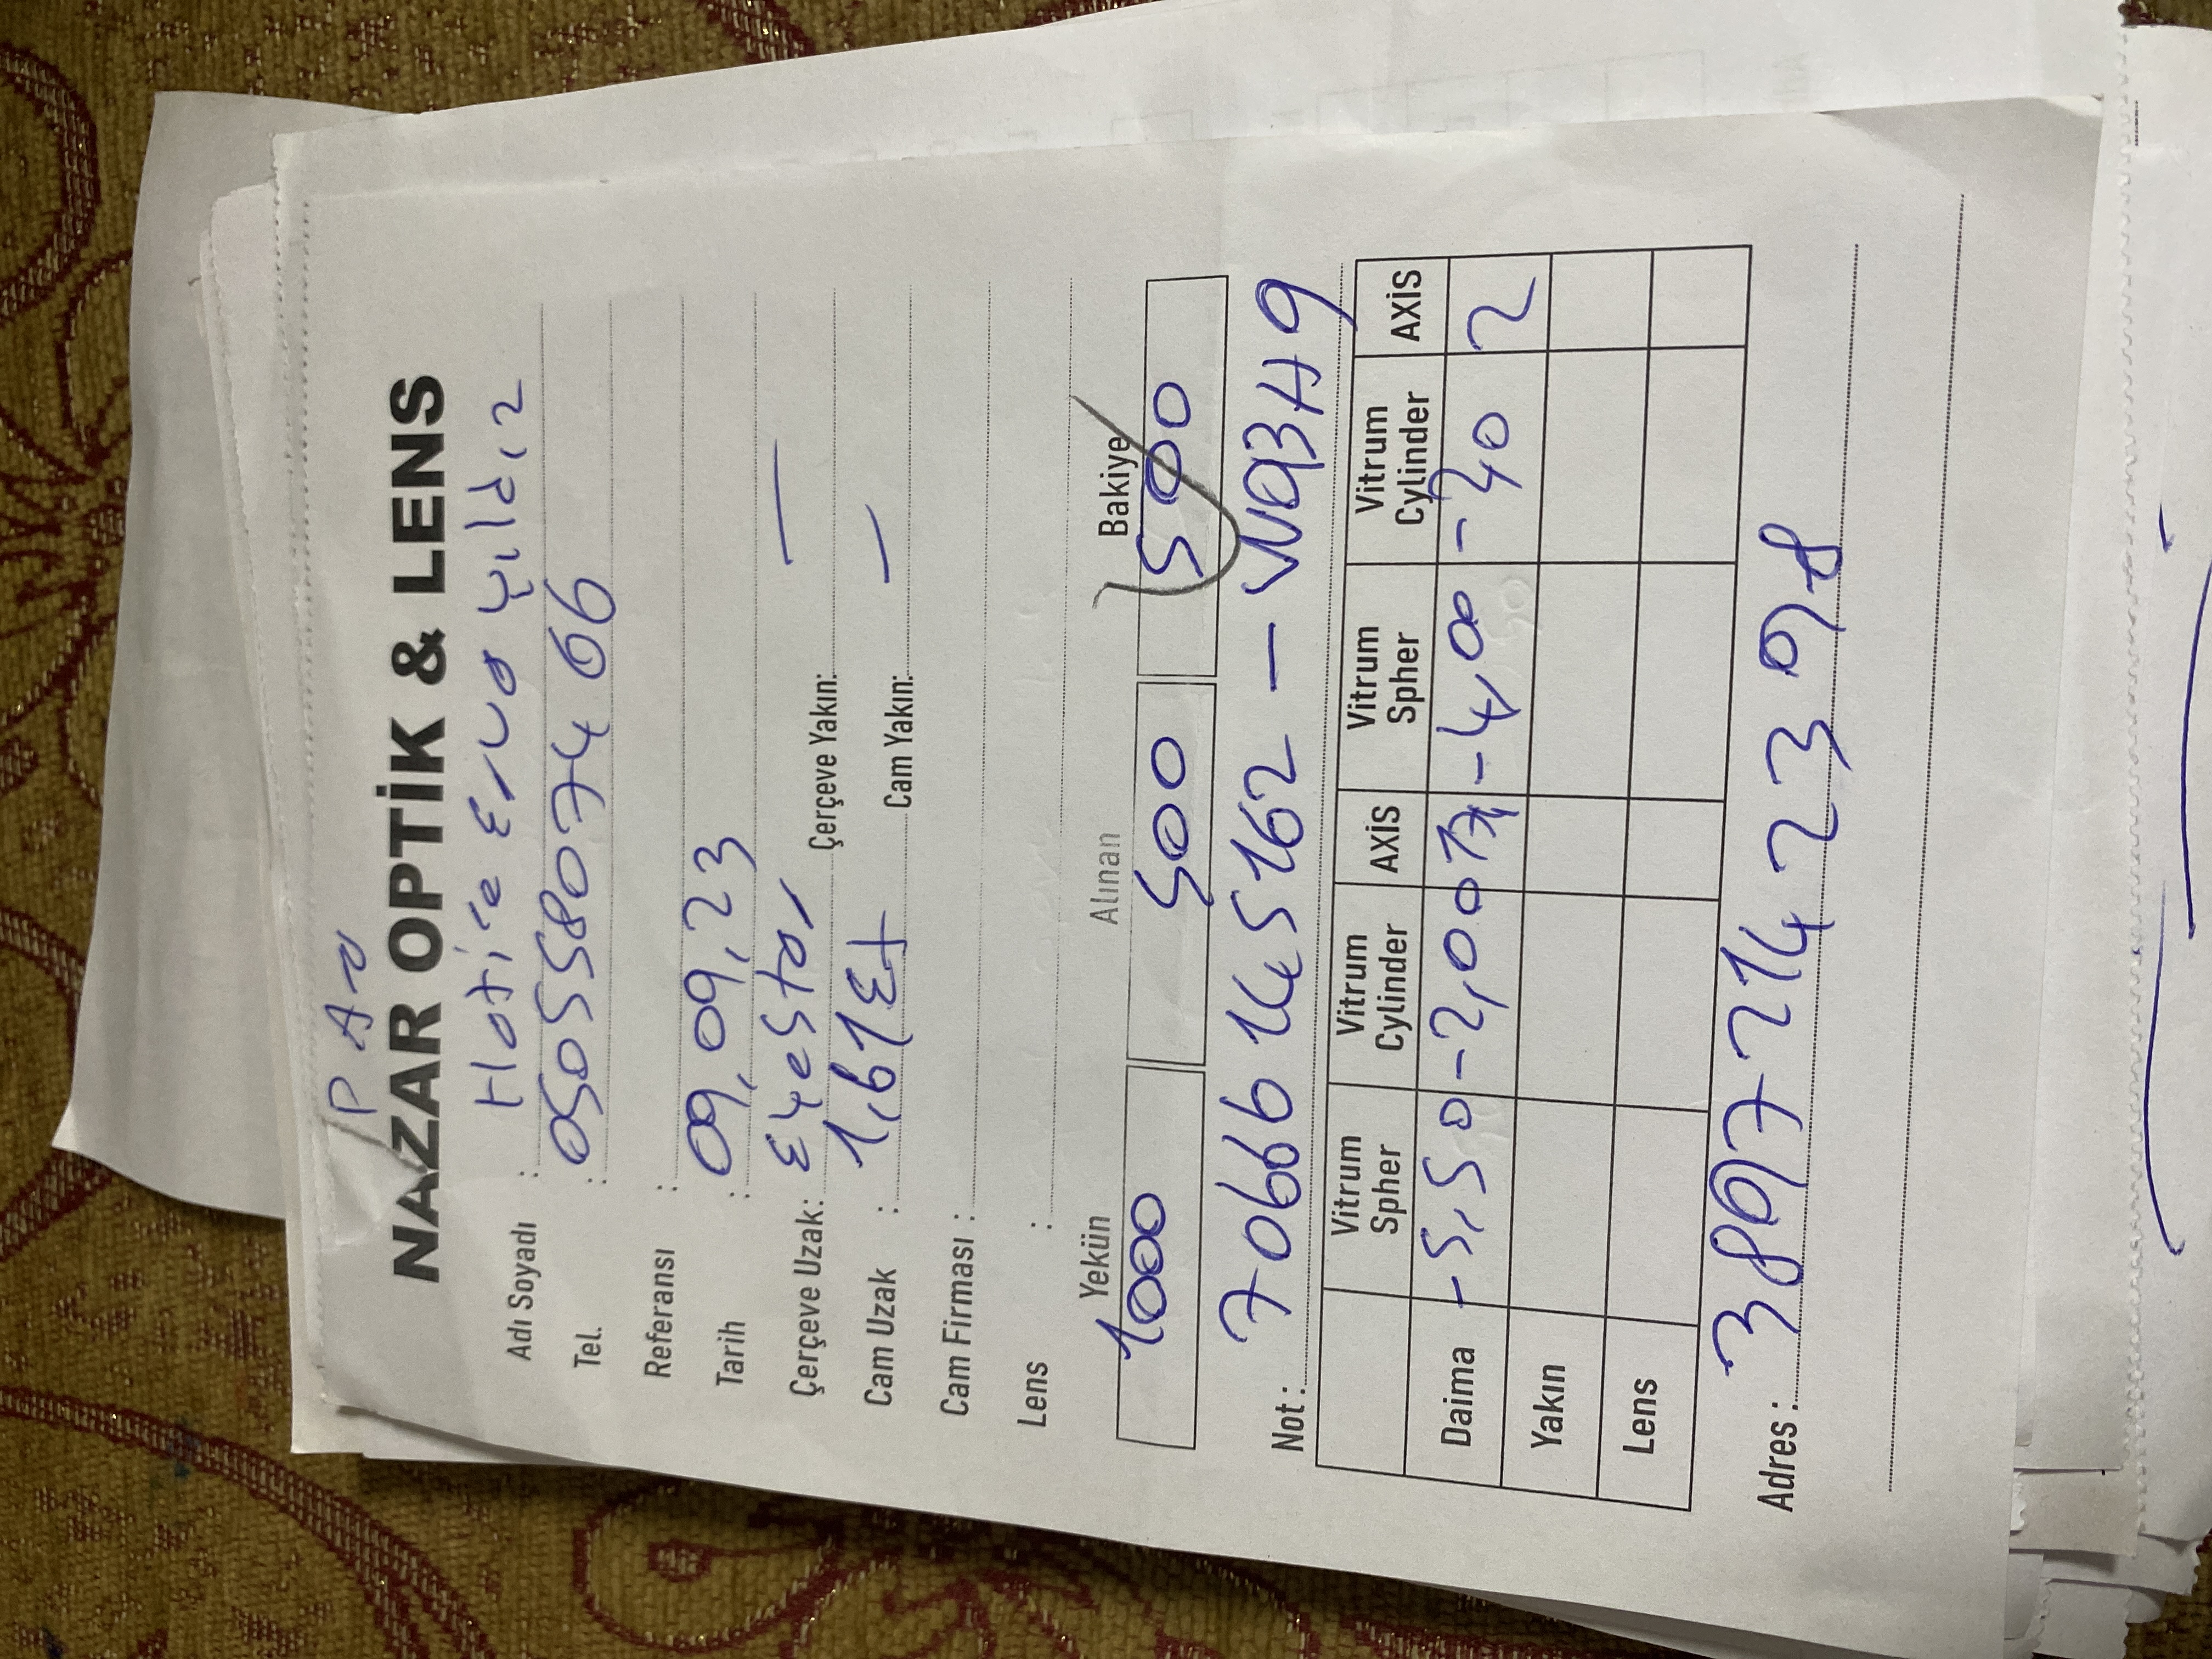 PAU
NAZAR OPTİK & LENS
Adı Soyadı : Hatice Erva Yıldız
Tel. : 05055807466
Referansı :
Tarih : 09,09,23
Çerçeve Uzak: Eyestar Çerçeve Yakın: —
Cam Uzak : 1,61 Cam Yakın: —
Cam Firması :
Lens :
Yekün Alınan Bakiye
1000 500 500
Not : 70666145162 - W93H9
Vitrum Spher Vitrum Cylinder AXİS Vitrum Spher Vitrum Cylinder AXİS
Daima -5,50 -2,00 -4,00 2
Yakın
Lens
Adres : 38972142398